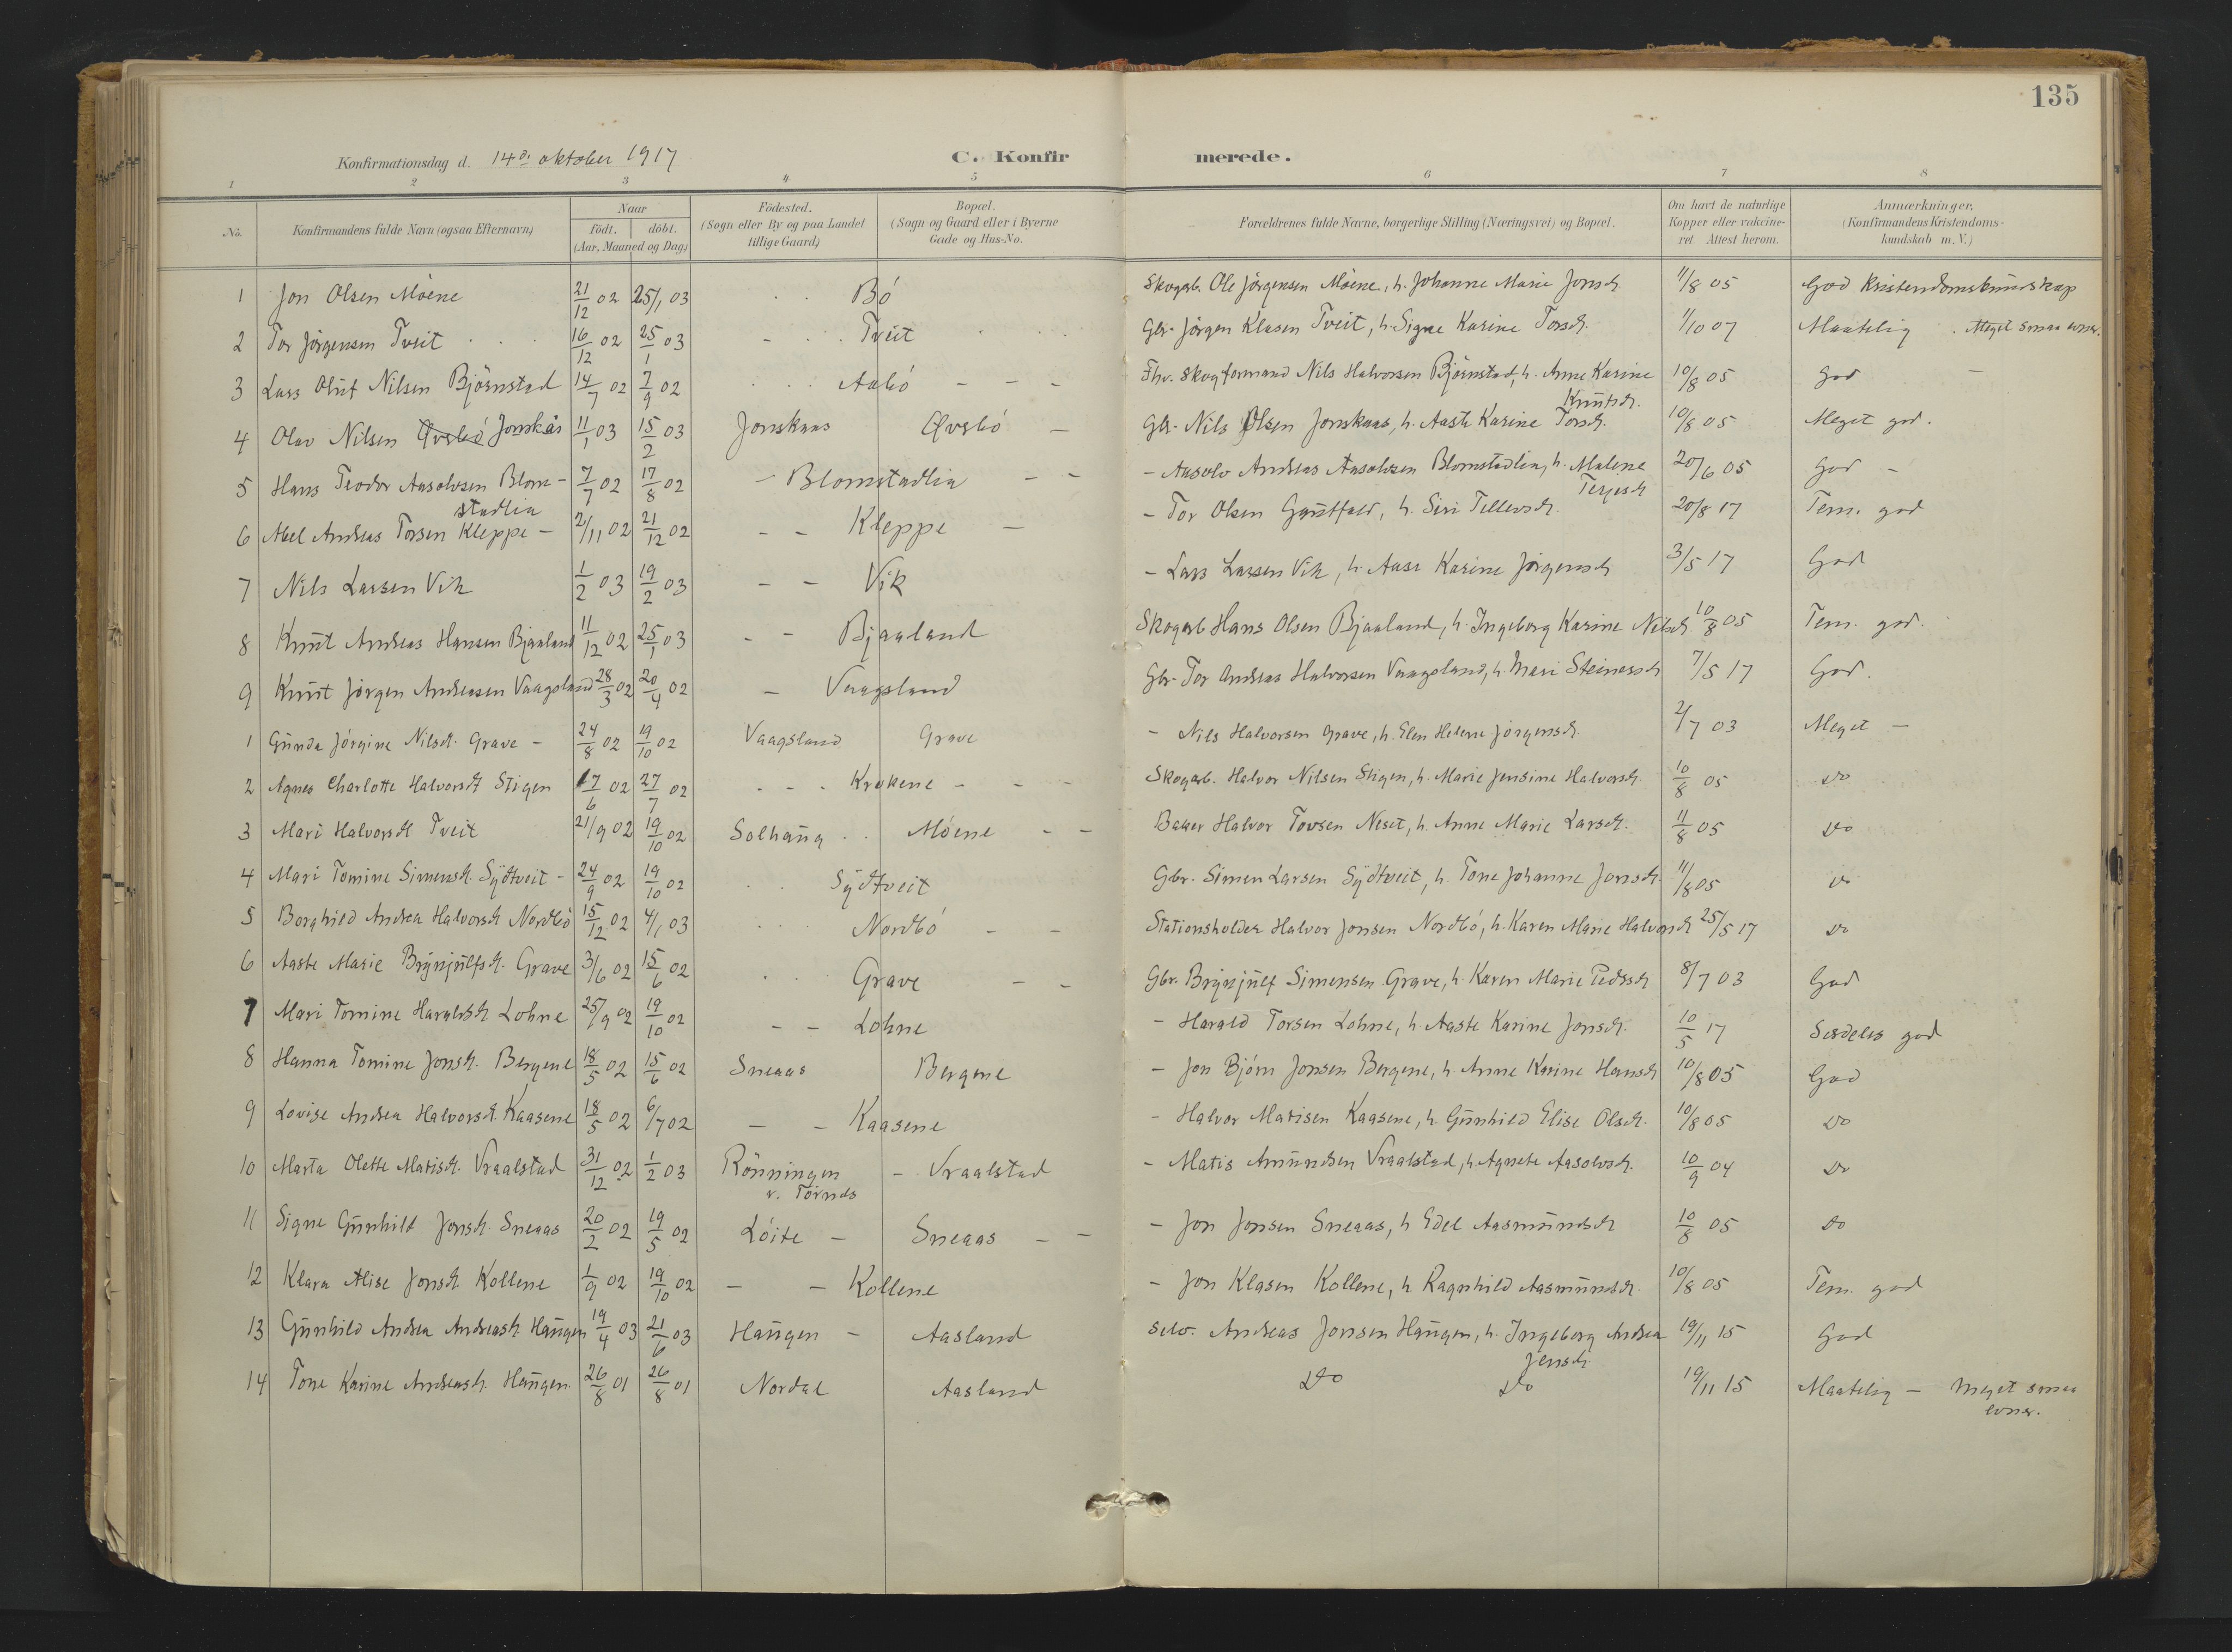 135
Konfirmationsdag d. 14de oktober 1917 C. Konfir merede.
1 2 3 4 5 6 7 8
No. Konfirmandens fulde Navn (ogsaa Efternavn) Naar födt. döbt. (Aar, Maaned og Dag.) Födested. (Sogn eller By og paa Landet tillige Gaard.) Bopæl. (Sogn og Gaard eller i Byerne Gade og Hus-No. Forældrenes fulde Navne, borgerlige Stilling (Næringsvei) og Bopæl. Om havt de naturlige Kopper eller vakcineret Attest herom. Anmærkninger. (Konfirmandens Kristendomskundskab m. V.)
1 Jon Olsen Móene 21/12 02 25/1 03 Bó Skogarb. Ole Jörgensen Móene, h. Johanne Marie Jonsd. 11/8 05 God Kristendomskundskap
2 Tor Jörgensen Tveit 16/12 02 25/1 03 - Tveit Gbr. Jörgen Klasen Tveit, h. Signe Karine Torsd. 1/10 07 Maatelig . Meget smaa evner.
3 Lars Oluf Nilsen Björnstad 14/7 02 7/9 02 Aabó - - - Fhv. Skogformand Nils Halvorsen Björnstad, h. Anne Karine Knutsd. 10/8 05 God -
4 Olav Nilsen Øvrebó Jonskås 11/1 03 15/2 03 Jonskaas Øvrebó - Gbr. Nils Olsen Jonskaas, h. Aaste Karine Torsd. 10/8 05 Meget god.
5 Hans Teodor Aasolvsen Blomstadlia 7/7 02 17/8 02 - Blomstadlia - - - Aasolv Andreas Aasolvsen Blomstadlia, h. Malene Terjesd 20/6 05 God -
6 Abel Andreas Torsen Kleppe - 2/11 02 21/12 02 - - Kleppe - - Tor Olsen Gautfald, h. Siri Tellevsd. 20/8 17 Tem. god
7 Nils Larsen Vik 1/2 03 19/2 03 - - Vik - Lars Larsen Vik, h. Aase Karine Jörgensd 3/5 17 God
8 Knut Andreas Hansen Bjaaland 11/12 02 25/1 03 - - Bjaaland Skogarb Hans Olsen Bjaaland, h. Ingeborg Karine Nilsd. 10/8 05 Tem. god.
9 Knut Jörgen Andreasen Vaagsland 28/3 02 20/4 02 - Vaagsland Gbr. Tor Andreas Halvorsen Vaagsland, h Mari Steinarsd 7/5 17 God.
1 Gunda Jörgine Nilsd. Grave - 24/8 02 19/10 02 Vaagsland Grave - Nils Halvorsen Grave, h. Elen Helene Jörgensd. 2/7 03 Meget -
2 Agnes Charlotte Halvorsd Stigen 17/6 02 27/7 02 - - - Krokene - - - Skogarb. Halvor Nilsen Stigen, h. Marie Jensine Halvorsd. 10/8 05 Do
3 Mari Halvorsd Tveit 21/9 02 19/10 02 Solhaug Móene - - Baker Halvor Tovsen Neset, h. Anne Marie Larsd. 11/8 05 Do
4 Mari Tomine Simensd. Sydtveit - 24/9 02 19/10 02 Sydtveit Gbr. Simen Larsen Sydtveit, h. Tone Johanne Jonsd. 11/8 05 Do
5 Borghild Andrea Halvorsd Nordbó 15/12 02 4/1 03 Nordbó - - Stationsholder Halvor Jonsen Nordbó, h. Karen Marie Halvorsd 25/5 17 Do
6 Aaste Marie Brynjulfsd. Grave 3/6 02 15/6 02 Grave - - Gbr. Brynjulf Simensen Grave, h. Karen Marie Pedersd 8/7 03 God
7 Mari Tomine Haraldsd Lohne 25/9 02 19/10 02 - - Lohne - Harald Torsen Lohne, h. Aaste Karine Jonsd. 10/5 17 Serdeles god
8 Hanna Tomine Jonsd. Bergene 18/5 02 15/6 02 Sneaas Bergene - Jon Björn Jonsen Bergene, h. Anne Karine Hansd 10/8 05 God
9 Lovise Andrea Halvorsd. Kaasene 18/5 02 6/7 02 - - Kaasene - Halvor Matisen Kaasene, h. Gunhild Elise Olsd. 10/8 05 Do
10 Marta Olette Matisd. Vraalstad 31/12 02 1/2 03 Rönningen v. Törnes - Vraalstad - Matis Amundsen Vraalstad, h. Agnete Aasolvsd. 10/9 04 Do
11 Signe Gunhild Jonsd. Sneaas 20/2 02 19/5 02 Lóite - Sneaas - - - Jon Jonsen Sneaas, h Edel Aasmundsd 10/8 05 Do
12 Klara Alise Jonsd Kollene 1/9 02 19/10 02 - - Kollene - Jon Klasen Kollene, h Ragnhild Aasmundsd. 10/8 05 Tem. god
13 Gunhild Andrea Andreasd. Haugen 19/4 03 21/6 03 Haugen - Aasland Selv. Andreas Jonsen Haugen, h. Ingeborg Andrea Jensd. 19/11 15 God
14 Tone Karine Andreasd. Haugen 26/8 01 26/8 01 Nordal Aasland Do Do 19/11 15 Maatelig - Meget smaa evner.